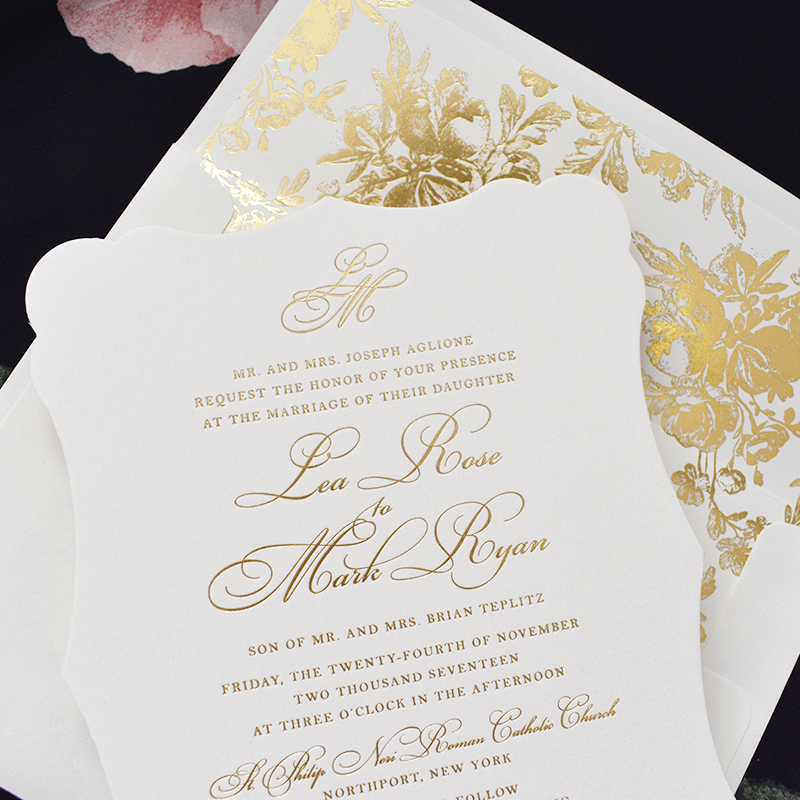 LM
MR. AND MRS. JOSEPH AGLIONE
REQUEST THE HONOR OF YOUR PRESENCE
AT THE MARRIAGE OF THEIR DAUGHTER
Lea Rose
to
Mark Ryan
SON OF MR. AND MRS. BRIAN TEPLITZ
FRIDAY, THE TWENTY-FOURTH OF NOVEMBER
TWO THOUSAND SEVENTEEN
AT THREE O'CLOCK IN THE AFTERNOON
St. Philip Neri Roman Catholic Church
NORTHPORT, NEW YORK
FOLLOW